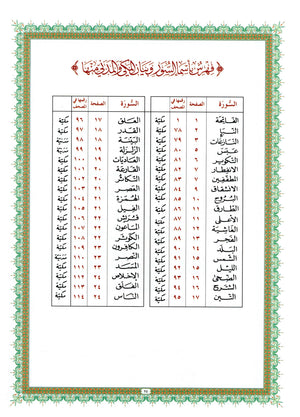 فهرس بأسماء السور وبيان المكي والمدني منها
السورة الصفحة رقمها في المصحف
الفاتحة ١ ١ مكية
النبإ ٧٨ مكية
النازعات ٣ ٧٩ مكية
عبس ٥ ٨٠ مكية
التكوير ٦ ٨١ مكية
الانفطار ٧ ٨٢ مكية
المطففين ٨٣ مكية
الانشقاق ٩ ٨٤ مكية
البروج ١٠ ٨٥ مكية
الطارق ١١ ٨٦ مكية
الأعلى ٨٧ مكية
الغاشية ١٢ ٨٨ مكية
الفجر ١٣ ٨٩ مكية
البلد ١٤ ٩٠ مكية
الشمس ١٥ ٩١ مكية
الليل ٩٢ مكية
الضحى ١٦ ٩٣ مكية
الشرح ٩٤ مكية
التين ١٧ ٩٥ مكية
السورة الصفحة رقمها في المصحف
العلق ١٧ ٩٦ مكية
القدر ١٨ ٩٧ مكية
البينة ١٨ ٩٨ مدنية
الزلزلة ١٩ ٩٩ مدنية
العاديات ١٩ ١٠٠ مكية
القارعة ٢٠ ١٠١ مكية
التكاثر ٢٠ ١٠٢ مكية
العصر ٢١ ١٠٣ مكية
الهمزة ٢١ ١٠٤ مكية
الفيل ٢١ ١٠٥ مكية
قريش ٢٢ ١٠٦ مكية
الماعون ٢٢ ١٠٧ مكية
الكوثر ١٠٨ مكية
الكافرون ٢٣ ١٠٩ مكية
النصر ٢٣ ١١٠ مدنية
المسد ٢٣ ١١١ مكية
الإخلاص ٢٤ ١١٢ مكية
الفلق ٢٤ ١١٣ مكية
الناس ٢٤ ١١٤ مكية